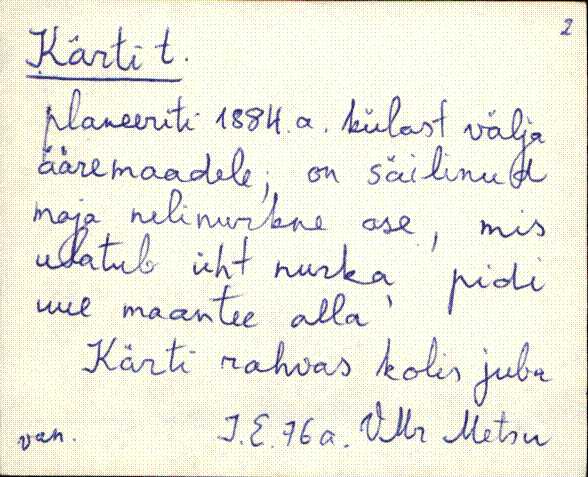 2
Kärti t.
planeeriti 1884. a. külast välja
ääremaadele; on säilinud
maja nelinurkne ase, mis
ulatub üht nurka pidi
uue maantee alla
Kärti rahvas kolis juba
van. J.E. 76 a. VMr Metsu